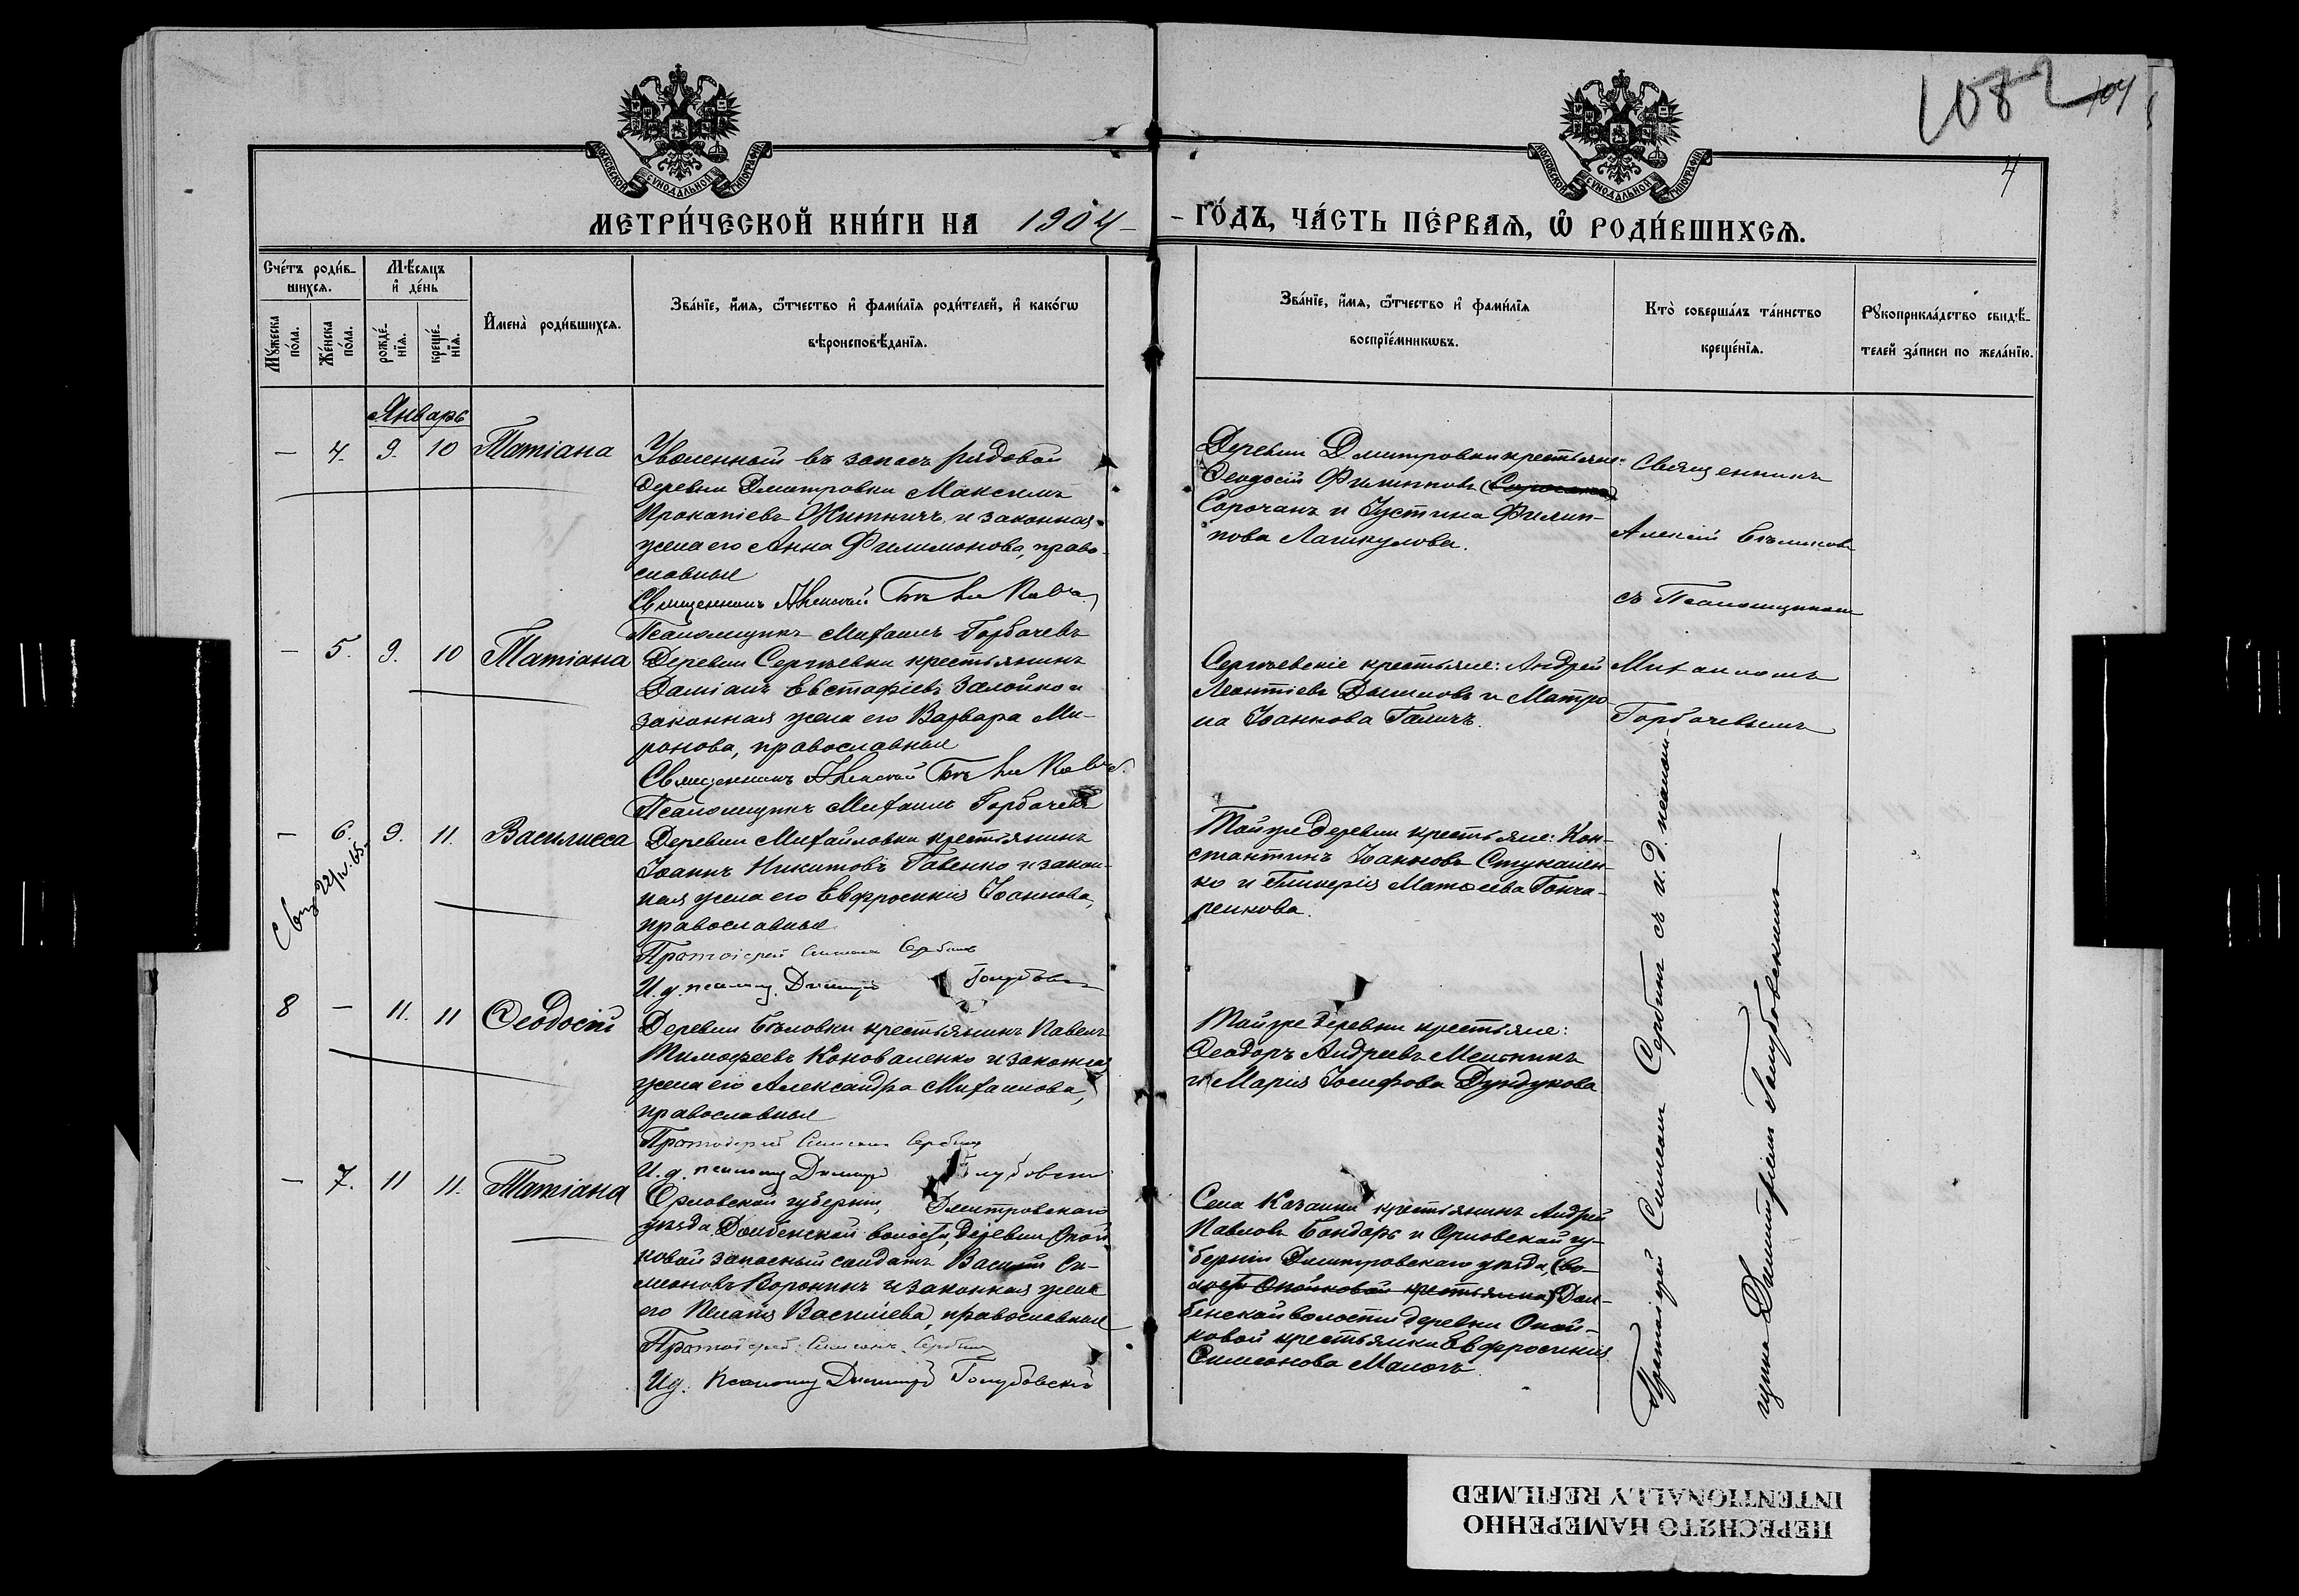 1082 104
4
МОСКОВСКОЙ СѴНОДАЛЬНОЙ ТИПОГРАФІИ
МОСКОВСКОЙ СѴНОДАЛЬНОЙ ТИПОГРАФІИ
МЕТРИ́ЧЕСКОЙ КНИ́ГИ НА 1904 -
- ГО́ДЪ, ЧА́СТЬ ПЕ́РВАЯ, Ѡ҆ РОДИ́ВШИХСЯ.
Сче́тъ роди́в-
шихся.
Мꙋ́жеска по́ла.
Же́нска по́ла.
Мѣ́сяцъ
и҆ де́нь
рожде́-нїя.
креще́-нїя.
И҆мена̀ роди́вшихся.
Зва́нїе, и҆́мя, ѻ҆́тчество и҆ фами́лїя роди́телей, и҆ како́гѡ
вѣроисповѣ́данїя.
Зва́нїе, и҆́мя, ѻ҆́тчество и҆ фами́лїя
воспрїе́мникѡвъ.
Кто̀ соверша́лъ та́инство
креще́нїя.
Рꙋкоприкла́дство свидѣ́-
телей за́писи по жела́нїю.
Январь
— 4. 9. 10 Татіана
Уволенный въ запасъ рядовой
деревни Дмитровки Максимъ
Прокопіевъ Житничъ и законная
жена его Анна Филимонова, право-
славные
Священникъ Алексій Бѣликовъ
Псаломщикъ Михаилъ Горбачевъ
Деревни Дмитровки крестьяне:
Ѳеодосій Филипповъ (Сорочанъ)
Сорочанъ и Іустина Филип-
пова Лашкулова.
Священникъ
Алексій Бѣликовъ
съ Псаломщикомъ
Михаиломъ
Горбачевымъ
— 5. 9. 10 Татіана
Деревни Сергѣевки крестьянинъ
Даміанъ Евстафіевъ Залойко и
законная жена его Варвара Ми-
ронова, православные
Священникъ Алексій Бѣликовъ
Псаломщикъ Михаилъ Горбачевъ
Сергѣевскіе крестьяне: Андрей
Леонтіевъ Дымовъ и Матро-
на Іоаннова Галичъ.
— 6. 9. 11. Василисса
22/IV.65.
Деревни Михайловки крестьянинъ
Іоаннъ Никитовъ Гавенко и закон-
ная жена его Евфросинія Іоаннова,
православные
Протоіерей Симеонъ Сербинъ
И. д. псаломщ. Димитрій Голубовскій
Той же деревни крестьяне: Кон-
стантинъ Іоанновъ Стукален-
ко и Гликерія Матѳеева Гонча-
ренкова.
8 — 11. 11 Ѳеодосій
Деревни Бѣловки крестьянинъ Павелъ
Тимофеевъ Коноваленко и законная
жена его Александра Михаилова,
православные
Протоіерей Симеонъ Сербинъ
И. д. псаломщ Димитрій Голубовскій
Той же деревни крестьяне:
Ѳеодоръ Андреевъ Мельникъ
и Марія Іосифова Дундукова
— 7. 11 11. Татіана
Орловской губерніи, Дмитровскаго
уѣзда Долбенской волости, деревни Опой-
ковой запасный солдатъ Василій Си-
меоновъ Воронинъ и законная жена
его Пелагія Василіева, православные
Протоіерей Симеонъ Сербинъ
И д. Псаломщ Димитрій Голубовскій
Села Казанки крестьянинъ Андрей
Павловъ Бондарь и Орловской гу-
берніи Дмитровскаго уѣзда, (во-
лости Опойковой крестьянка) Дол-
бенской волости деревни Опой-
ковой крестьянка Евфросинія
Симеонова Малогъ.
Протоіерей Симеонъ Сербинъ съ и. д. псалом-
щика Димитріемъ Голубовскимъ
ПЕРЕСНЯТО НАМЕРЕННО
INTENTIONALLY REFILMED